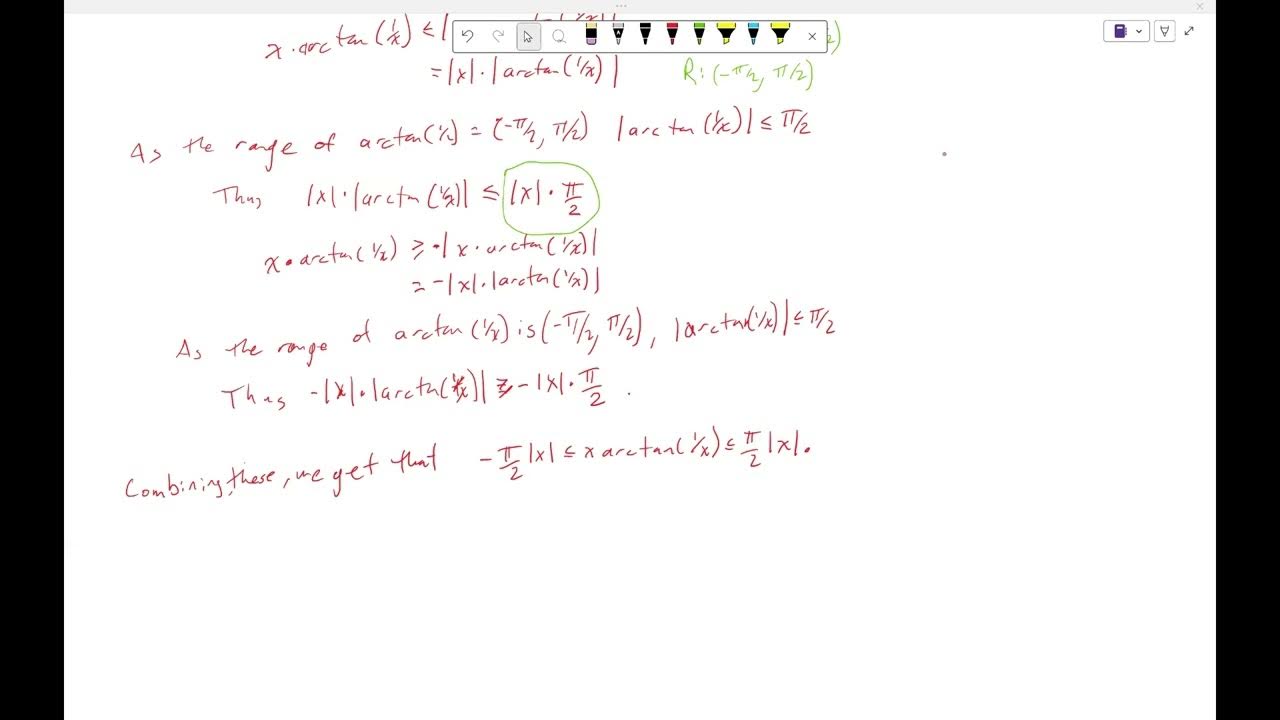 x · arctan (1/x) ≤ |
= |x| · |arctan(1/x)| R: (-π/2, π/2)
As the range of arctan(1/x) = (-π/2, π/2) |arctan(1/x)| ≤ π/2
Thus |x| · |arctan(1/x)| ≤ |x| · π/2
x · arctan(1/x) ≥ -|x · arctan(1/x)|
= -|x| · |arctan(1/x)|
As the range of arctan(1/x) is (-π/2, π/2), |arctan(1/x)| ≤ π/2
Thus -|x| · |arctan(1/x)| ≥ -|x| · π/2 .
Combining these, we get that -π/2 |x| ≤ x arctan(1/x) ≤ π/2 |x|.